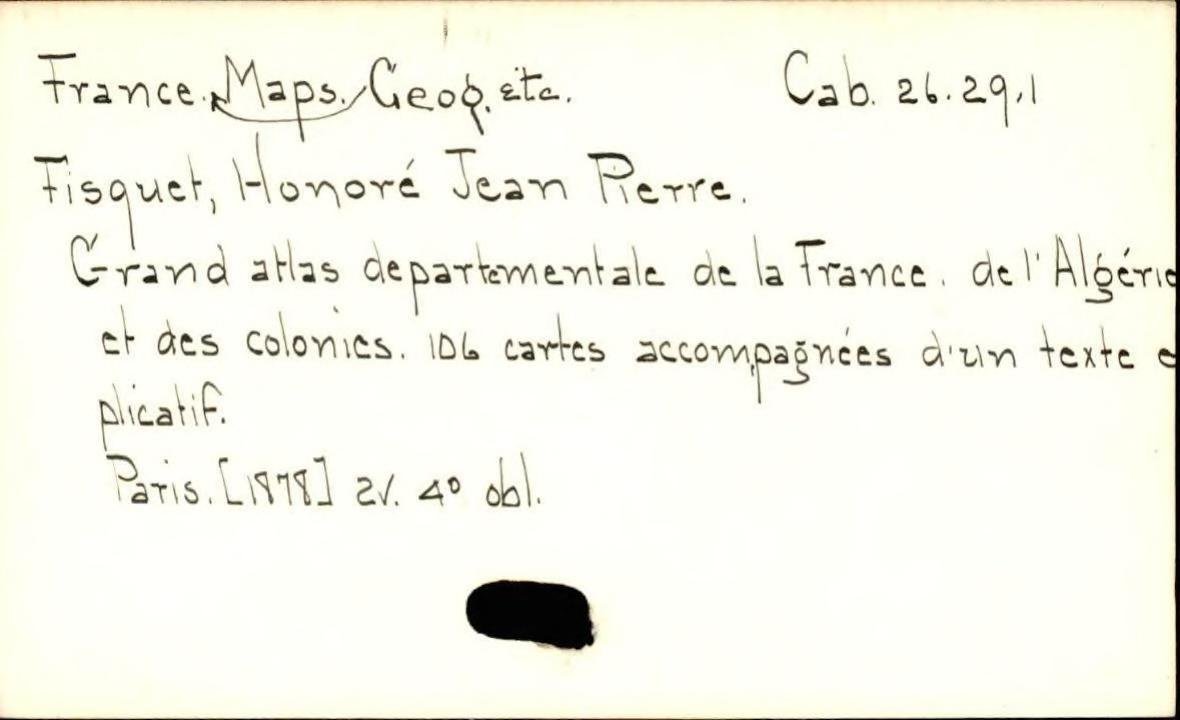 France. Maps. Geog. etc. Cab. 26.29,1
Fisquet, Honoré Jean Pierre.
Grand atlas departementale de la France. de l'Algérie
et des colonies. 106 cartes accompagnées d'un texte e
plicatif.
Paris. [1878] 2v. 4° obl.